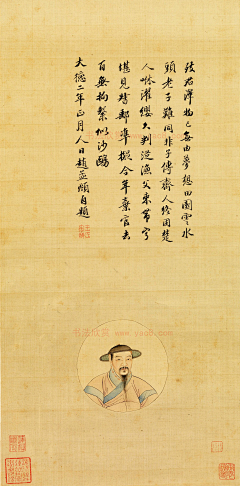 致君澤物已無由夢想田園雲水
頭老子難同非子傳齊人終困楚
人咻濯纓久判從漁父束帶寧
堪見督郵準擬今年棄官去
百無拘繫似沙鷗
大德二年正月人日趙孟頫自題
书法欣赏 www.yac8.com